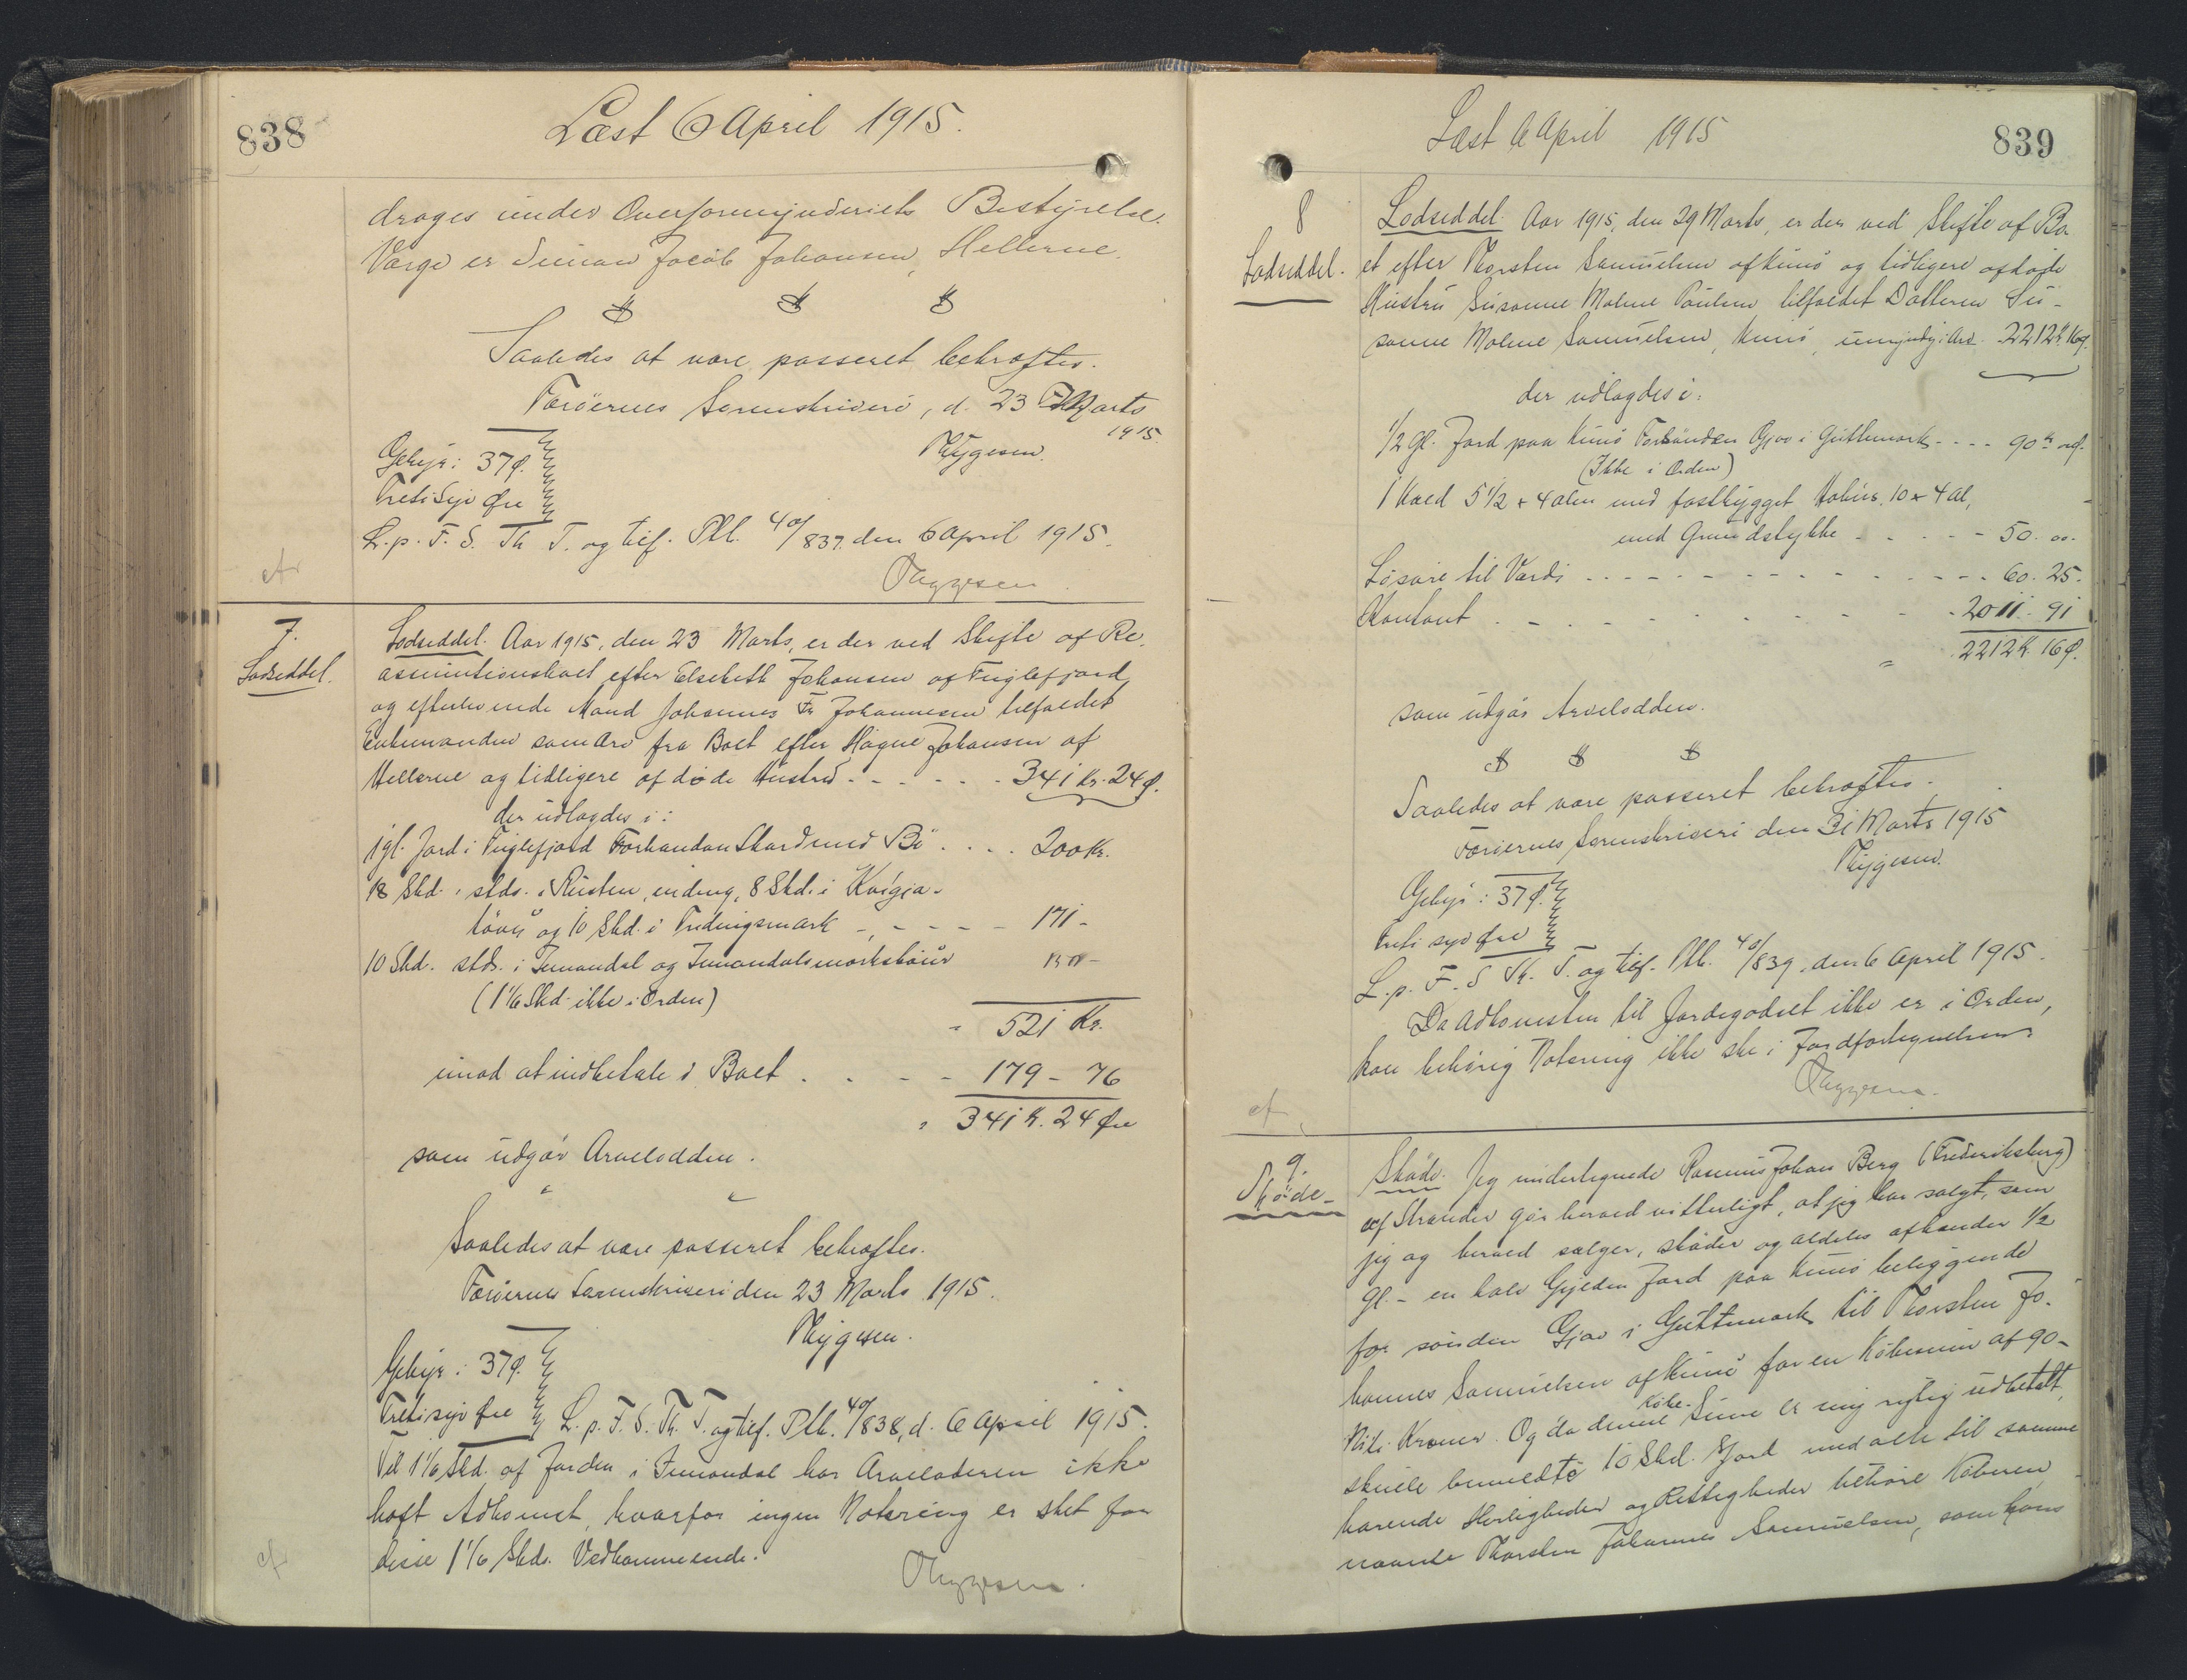 838
Læst 6 April 1915.
drages under Overformynderiets Bestyrelse.
Værge er Simon Jacob Johansen, Hellerne.
Saaledes at være passeret bekræftes.
Færöernes Sorenskriveri, d. 23 Marts
1915.
Gebyr: 37 Ø.
Thygesen.
Tretisyv Øre
L. p. F. S. Th. T. og tilf. Ptk. 40/837. den 6 April 1915.
Thygesen.
cfr
7.
Lodseddel.
Lodseddel. Aar 1915, den 23 Marts, er der ved Skifte af Re-
assumtionsboet efter Elsebeth Johansen af Fuglefjord
og efterlevende Mand Johannes Fr Johannesen tilfaldet
Enkemanden som Arv fra Boet efter Høgne Johansen af
Hellerne og tidligere afdøde Hustru - - - - - 341 Kr. 24 Ø.
der udlagdes i:
1 gl. Jord i Fuglefjord Forhandan Skard med Bö . . . . 200 Kr.
18 Skd. stds. i Rusten, 8 Skd. i Kvigja-
og 10 Skd. i Tredingsmark - - - - - 171 -
10 Skd. stds. i
(1 1/6 Skd. ikke i Orden)
521 Kr.
imod at indbetale i Boet . . - - 179 - 76
341 K. 24 Øre
som udgør Arvelodden.
Saaledes at være passeret bekræftes.
Færöernes Sorenskriveri den 23 Marts 1915.
Thygesen.
Gebyr: 37 Ø.
Tretisyv Øre L. p. F. S. Th. T. og tilf. Ptk. 40/838, d. 6 April 1915.
Til 1 1/6 Skd. af Jorden i har Arveladeren ikke
haft Adkomst, hvorfor ingen Notering er sket for
disse 1 1/6 Skds. Vedkommende.
Thygesen.
cf.
Læst 6 April 1915
839
8
Lodseddel.
Lodseddel. Aar 1915, den 29 Marts, er der ved Skifte af Bo-
et efter Thorsten Samuelsen af Kunö og tidligere afdøde
Hustru Susanne Malene Poulsen tilfaldet Datteren Su-
sanne Malene Samuelsen, Kunö, umyndig: Arv - 2212 K. 16 Ø.
der udlagdes i:
1/2 Gl. Jord paa Kunö Forsunden Gjov i Guttemark - - - - 90 K.
(Ikke i Orden)
1 5 1/2 x 4 Alen med fastbygget 10 x 4 Al,
med Grundstykke - - - - - 50. 00.
Løsøre til Værdi - - - - - - - - - - - 60. 25.
Kontant . - . - . - . - . - 2011. 91
2212 K. 16 Ø.
som udgør Arvelodden.
Saaledes at være passeret bekræftes.
Færöernes Sorenskriveri den 31 Marts 1915
Thygesen.
Gebyr: 37 Ø.
Treti syv Øre
L. p. F. S Th. T. og tilf. Ptk. 40/839, den 6 April 1915.
Da Adkomsten til Jordegodset ikke er i Orden,
kan behørig Notering ikke ske i Jordfortegnelsen
Thygesen.
cf.
9.
Skøde
Skøde. Jeg undertegnede Rasmus Johan Berg (Frederiksberg)
af Strænder gør herved vitterligt, at jeg har solgt, som
jeg og herved sælger, skøder og aldeles afhænder 1/2
Gl. - en halv Gylden Jord paa Kunö beliggende
for sunden Gjov i Guttemark til Thorsten Jo-
hannes Samuelsen af Kunö for en Købesum af 90 -
Niti Kroner. Og da denne Købe-Sum er mig rigtig udbetalt,
skulle bemeldte 10 Skd. Jord med alle til samme
hørende Herligheder og Rettigheder tilhøre Køberen
nævnte Thorsten Johannes Samuelsen, som hans